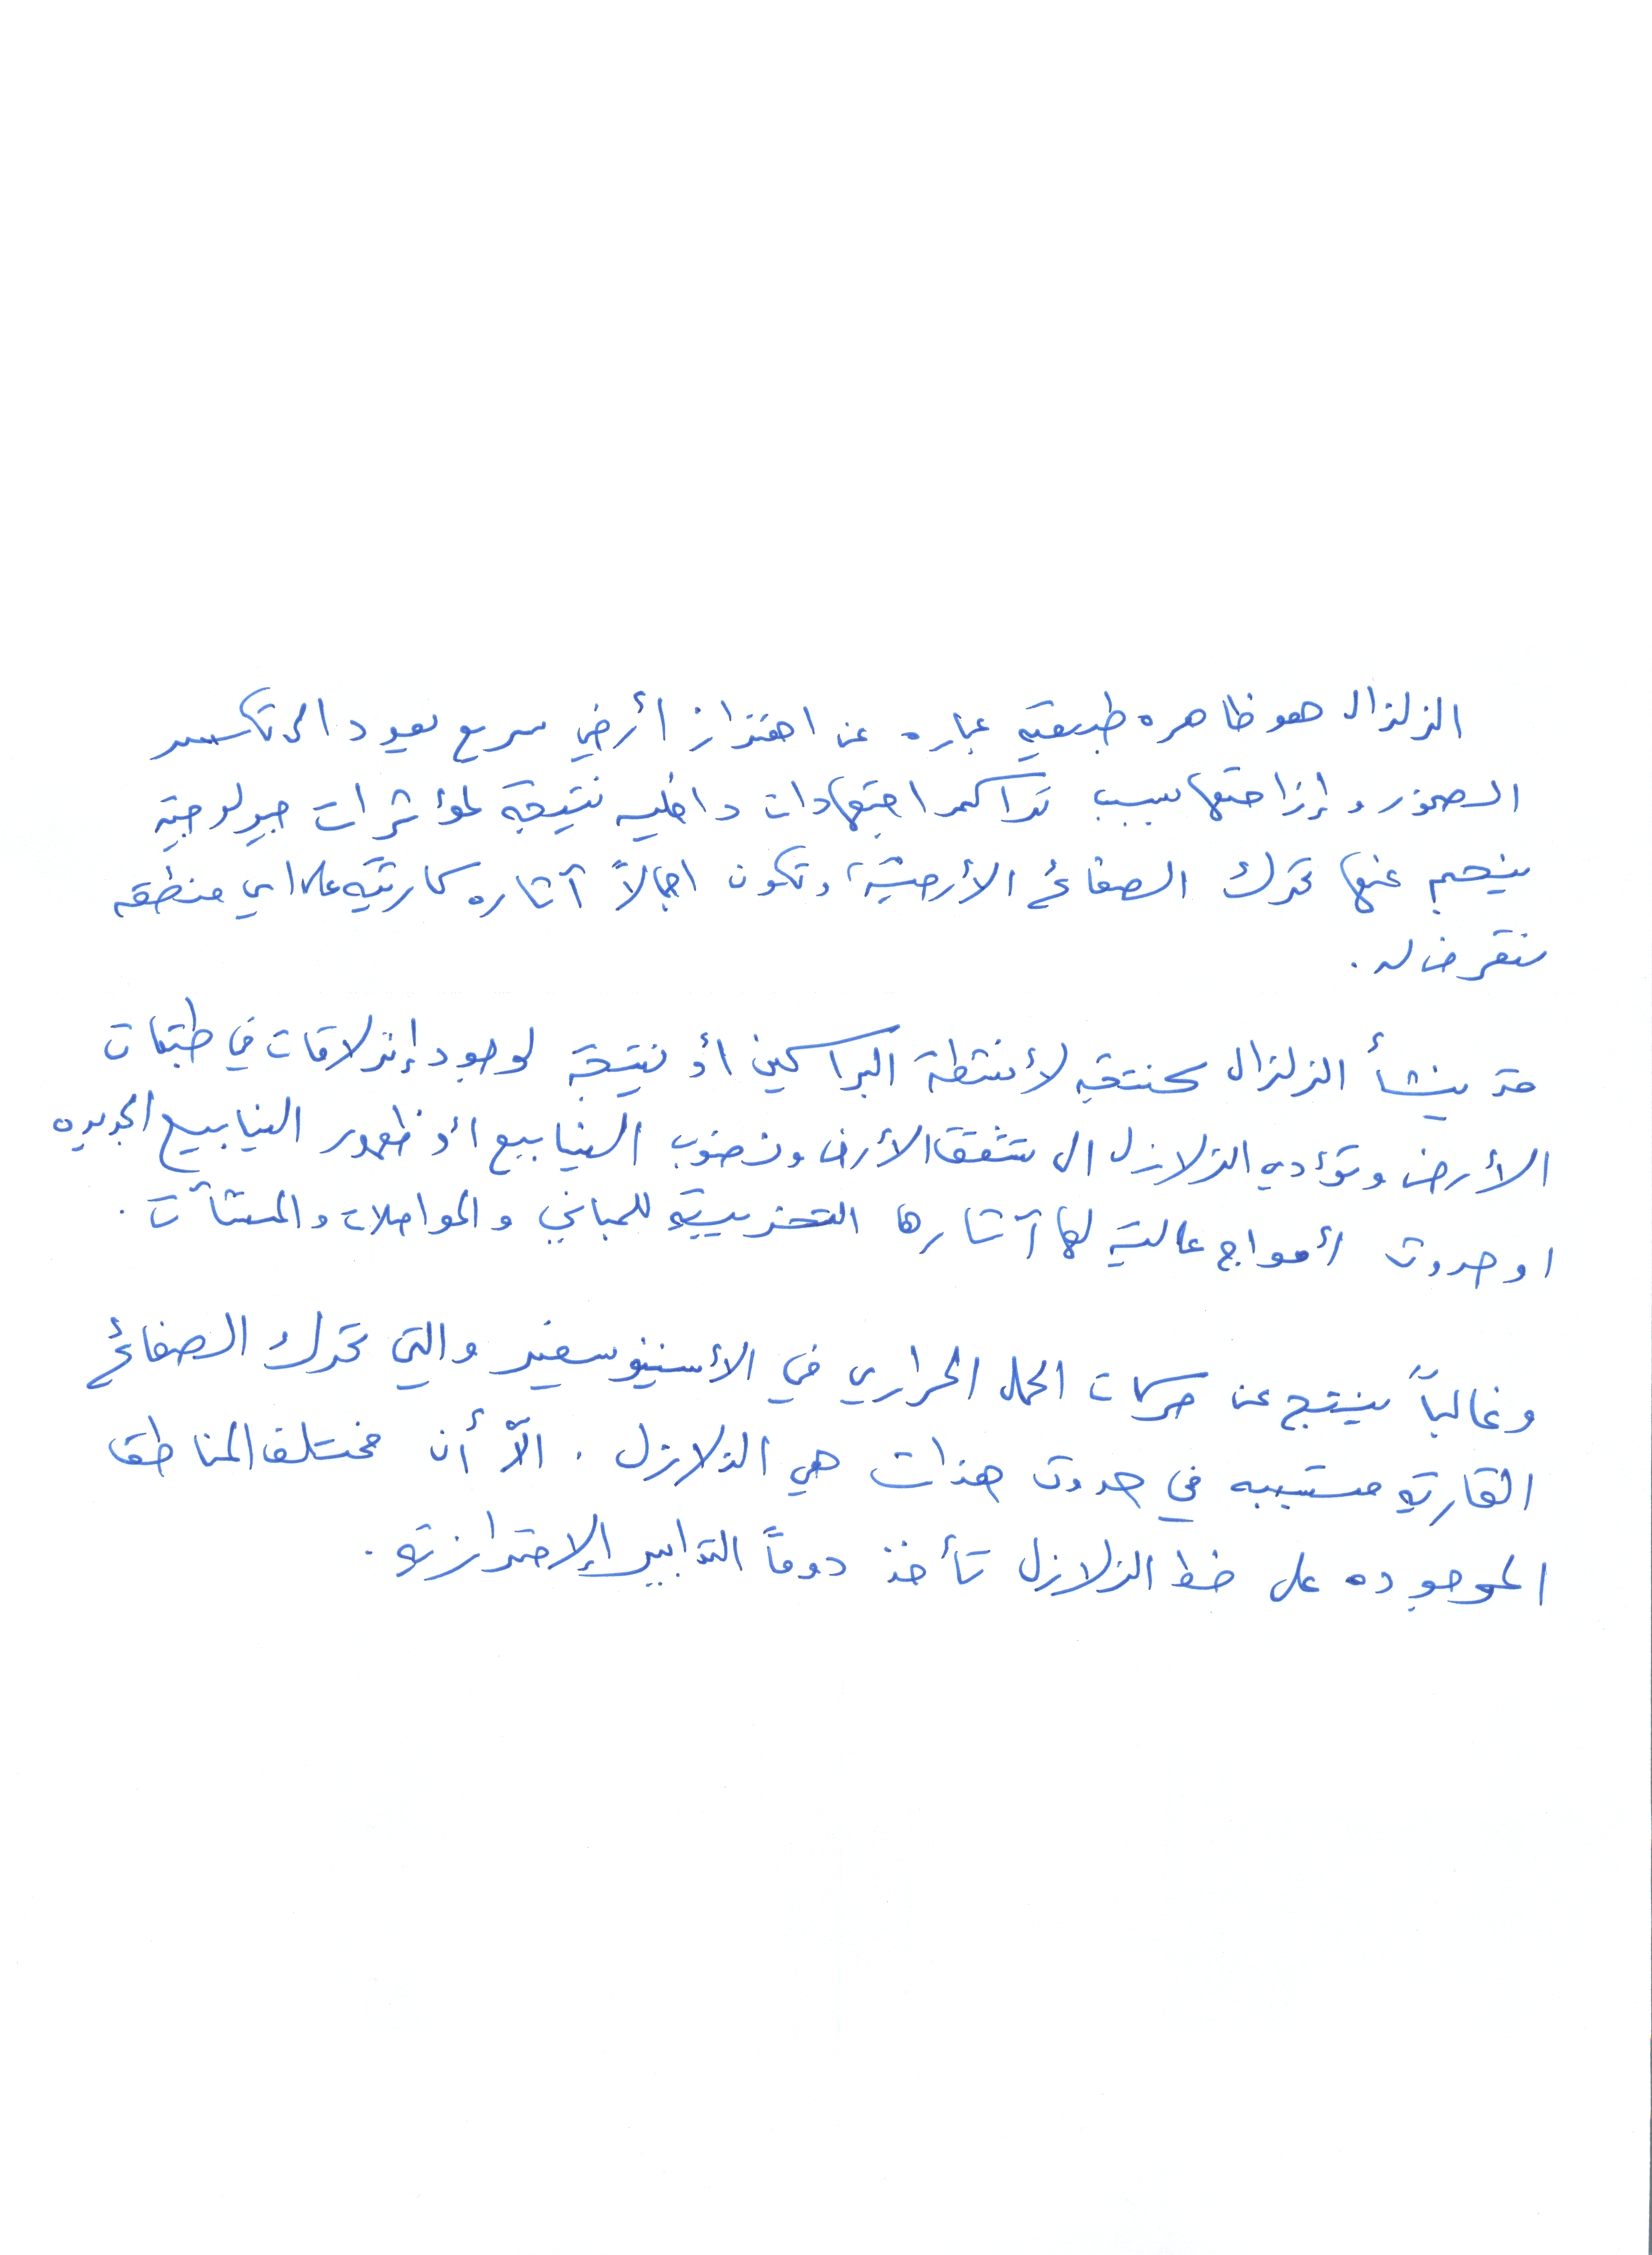 الزلزال هو ظاهره طبيعيه عباره عن اهتزاز أرضي سريع يعود الى تكسر
الصخور وإزاحتها بسبب تراكم اجتهادات داخليه نتيجة لمؤثرات جيولوجية
ينجم عنها تحرك الصفائح الأرضية، وتكون اجمالاً آثاره كارثيه على اي منطقه
تتعرض له.
قد ينشأ الزلزال كنتيجه لأنشطة البراكين أو نتيجة لوجود إنزلاقات في طبقات
الأرض وتؤدي الزلازل الى تشقق الأرض ونضوب الينابيع أو ظهور الينابيع الجديده
او حدوث أمواج عالية لها آثارها التخريبية للمباني والمواصلات والمنشآت.
وغالباً ينتج عن حركات الحمل الحراري في الأسينوسفير والتي تحرك الصفائح
القارية مسببه في حدوث هزات هي الزلازل. الاّ أن مختلف المناطق
الموجوده على خط الزلازل تأخذ دوماً التدابير الإحترازية.